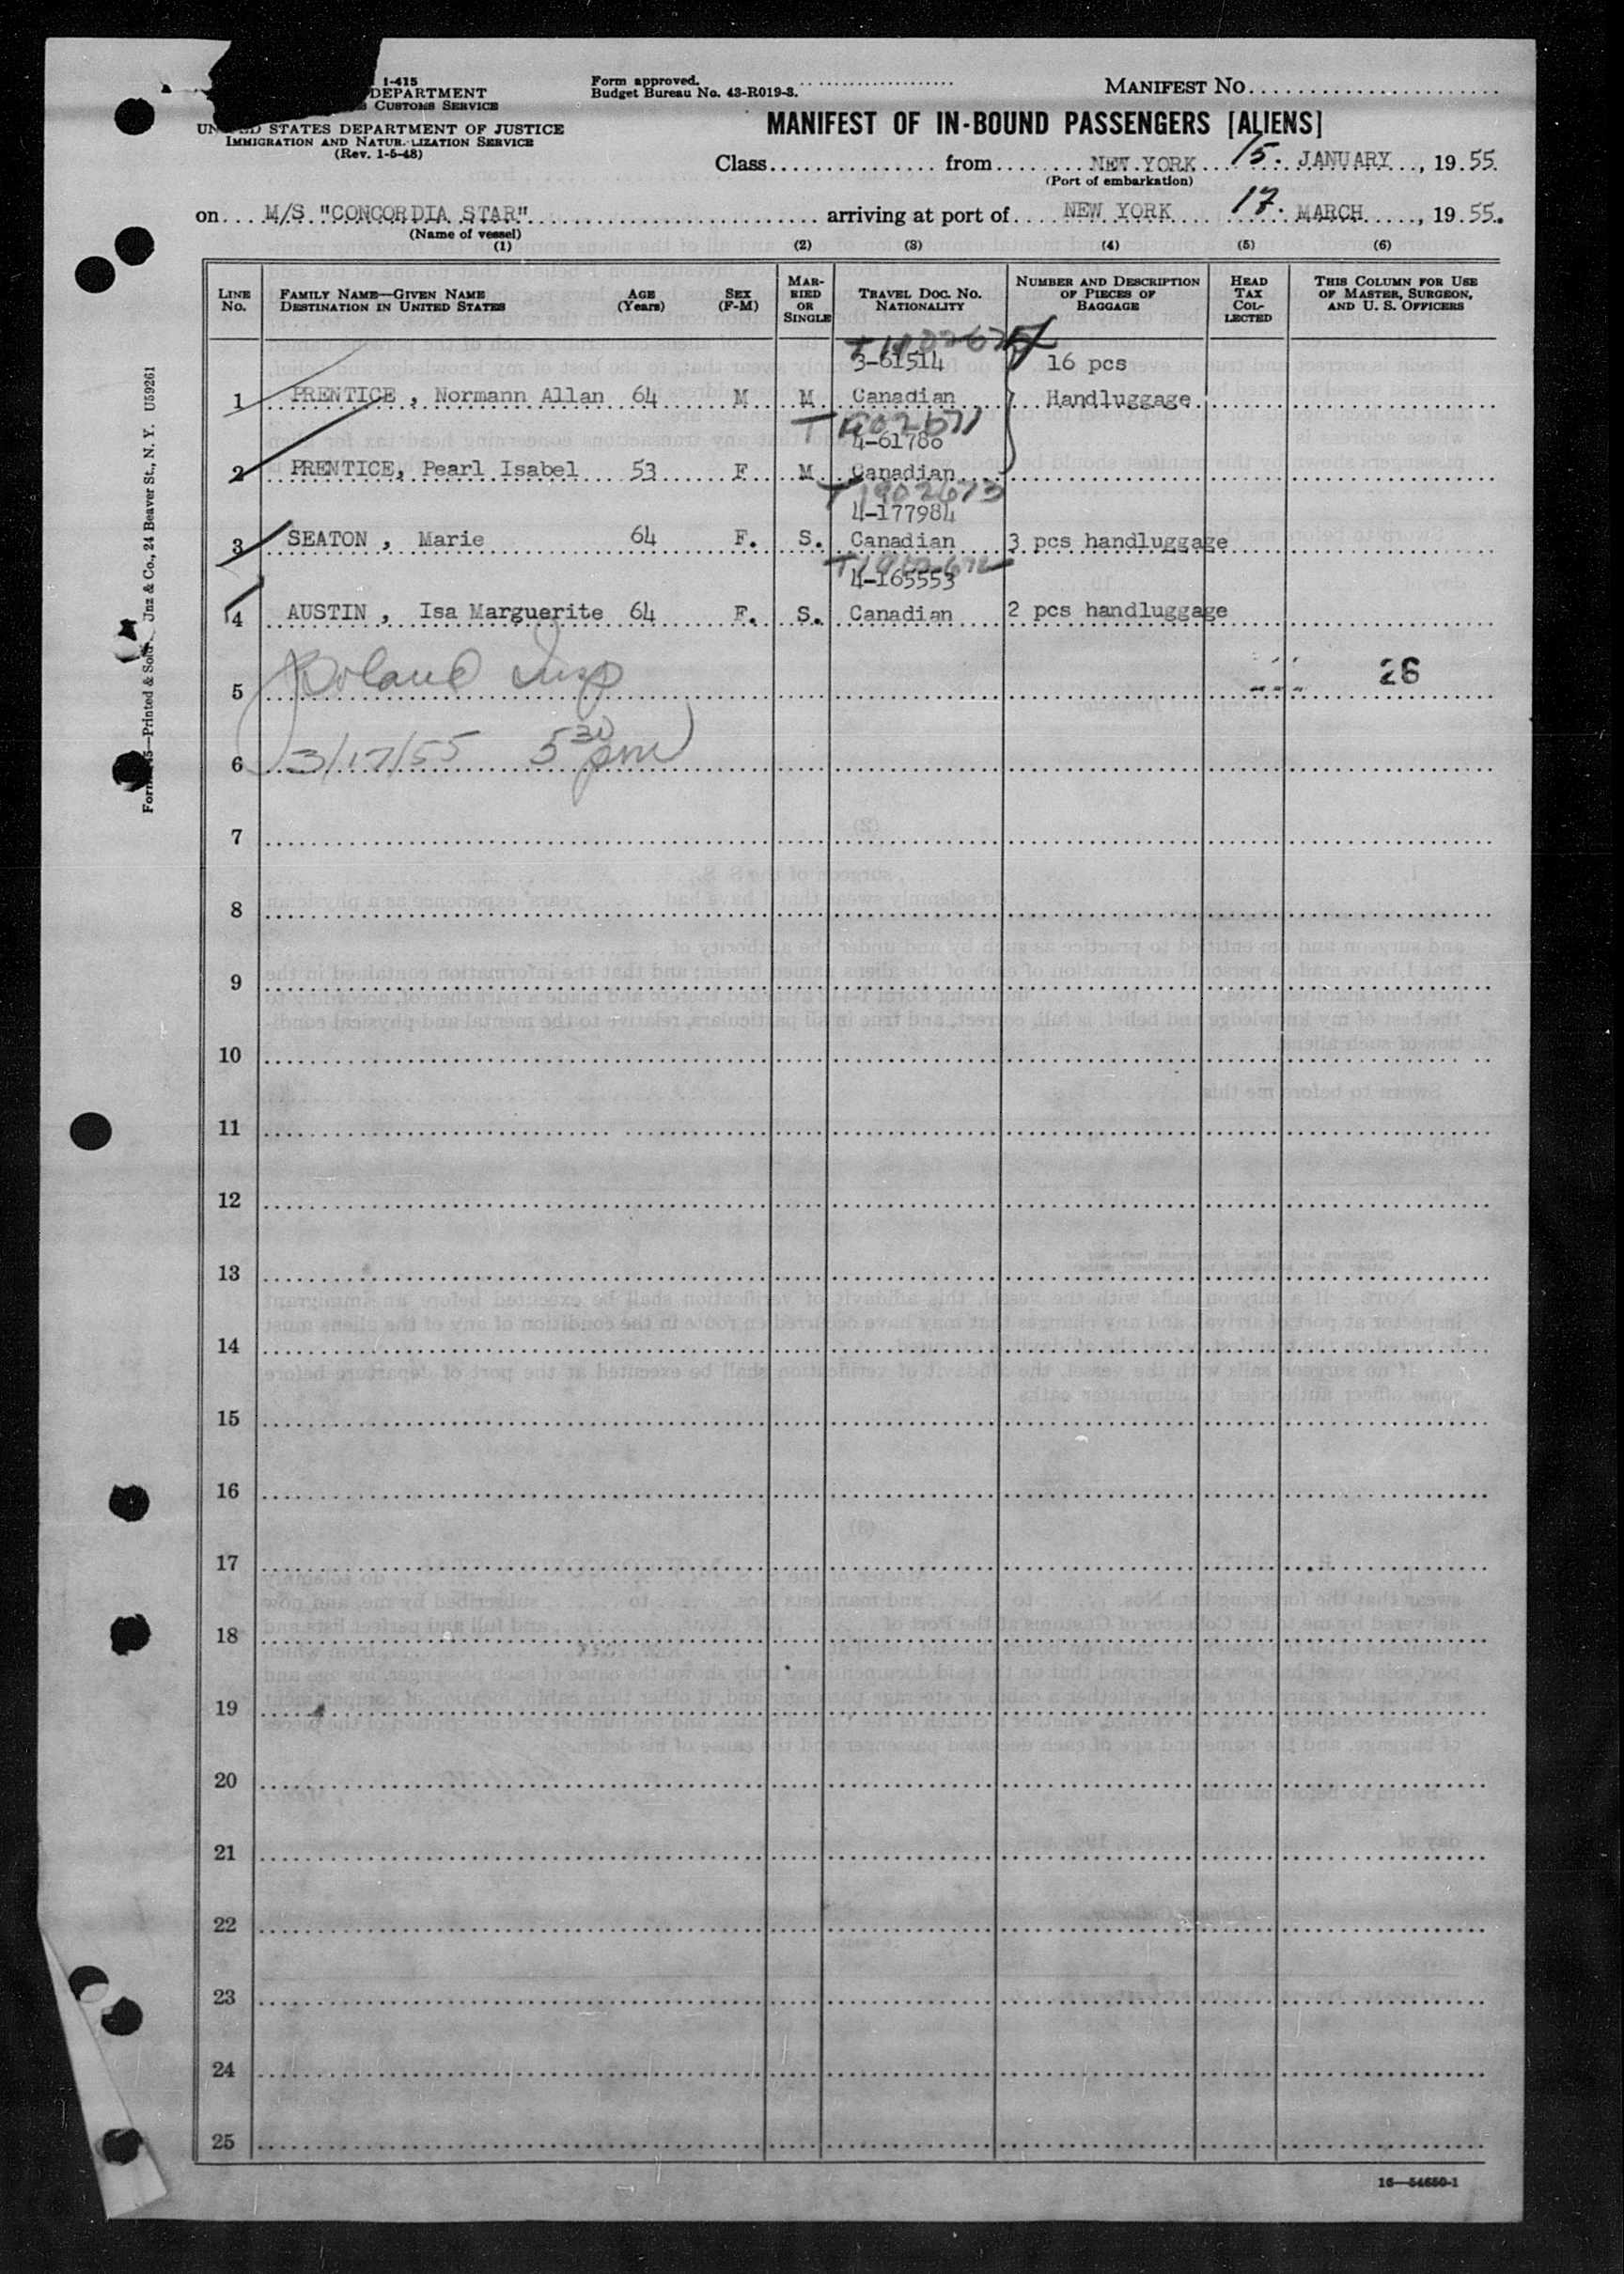 I-415
DEPARTMENT
CUSTOMS SERVICE
UNITED STATES DEPARTMENT OF JUSTICE
IMMIGRATION AND NATURALIZATION SERVICE
(Rev. 1-5-48)
Form approved.
Budget Bureau No. 43-R019-3.
MANIFEST NO.
MANIFEST OF IN-BOUND PASSENGERS [ALIENS]
Class from NEW YORK 15. JANUARY, 1955.
(Port of embarkation)
on M/S "CONCORDIA STAR" arriving at port of NEW YORK 17. MARCH, 1955.
(Name of vessel)
(1) (2) (3) (4) (5) (6)
LINE NO.
FAMILY NAME—GIVEN NAME
DESTINATION IN UNITED STATES
AGE (Years)
SEX (F-M)
MARRIED OR SINGLE
TRAVEL DOC. NO. NATIONALITY
NUMBER AND DESCRIPTION OF PIECES OF BAGGAGE
HEAD TAX COLLECTED
THIS COLUMN FOR USE OF MASTER, SURGEON, AND U. S. OFFICERS
3-61514 16 pcs
1 PRENTICE , Normann Allan 64 M M Canadian Handluggage
T1902671
4-61786
2 PRENTICE, Pearl Isabel 53 F M Canadian
T1902673
4-177984
3 SEATON , Marie 64 F. S. Canadian 3 pcs handluggage
T1902672
4-165553
4 AUSTIN , Isa Marguerite 64 F. S. Canadian 2 pcs handluggage
5 Boland Insp 26
6 3/17/55 5 30 pm
7
8
9
10
11
12
13
14
15
16
17
18
19
20
21
22
23
24
25
16—54650-1
Printed & Sold Unz & Co., 24 Beaver St., N. Y. U59261